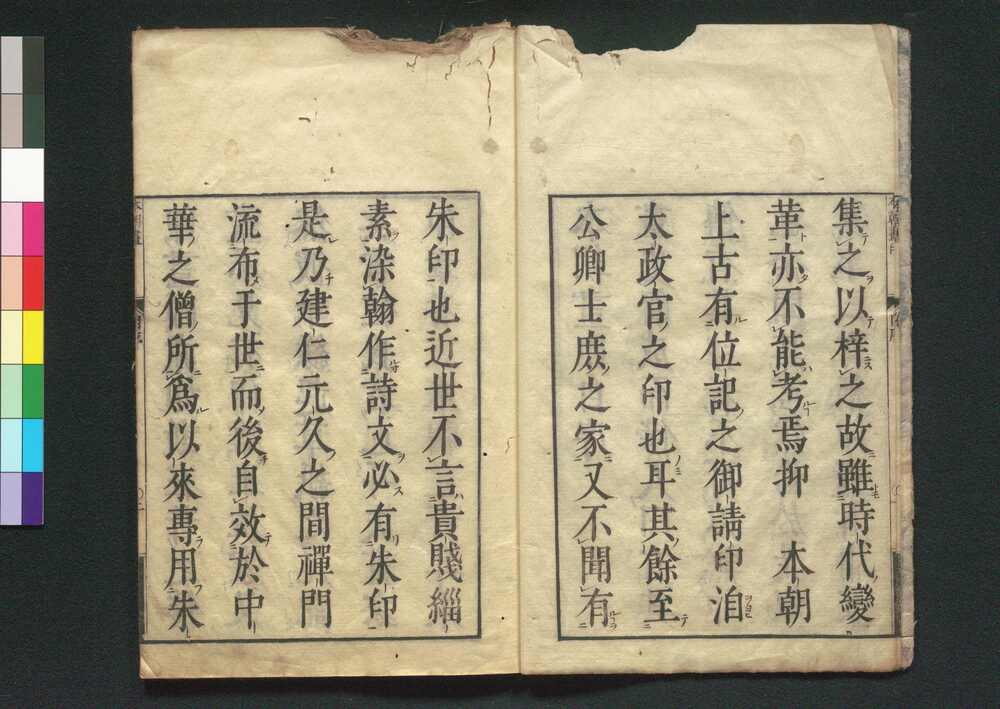 集之以梓之故雖時代變
革亦不能考焉抑　本朝
上古有位記之御請印洎
太政官之印也耳其餘至
公卿士庻之家又不聞有
朱印也近世不言貴賤緇
素染翰作詩文必有朱印
是乃建仁元久之間禪門
流布于世而後自效於中
華之僧所爲以來專用朱